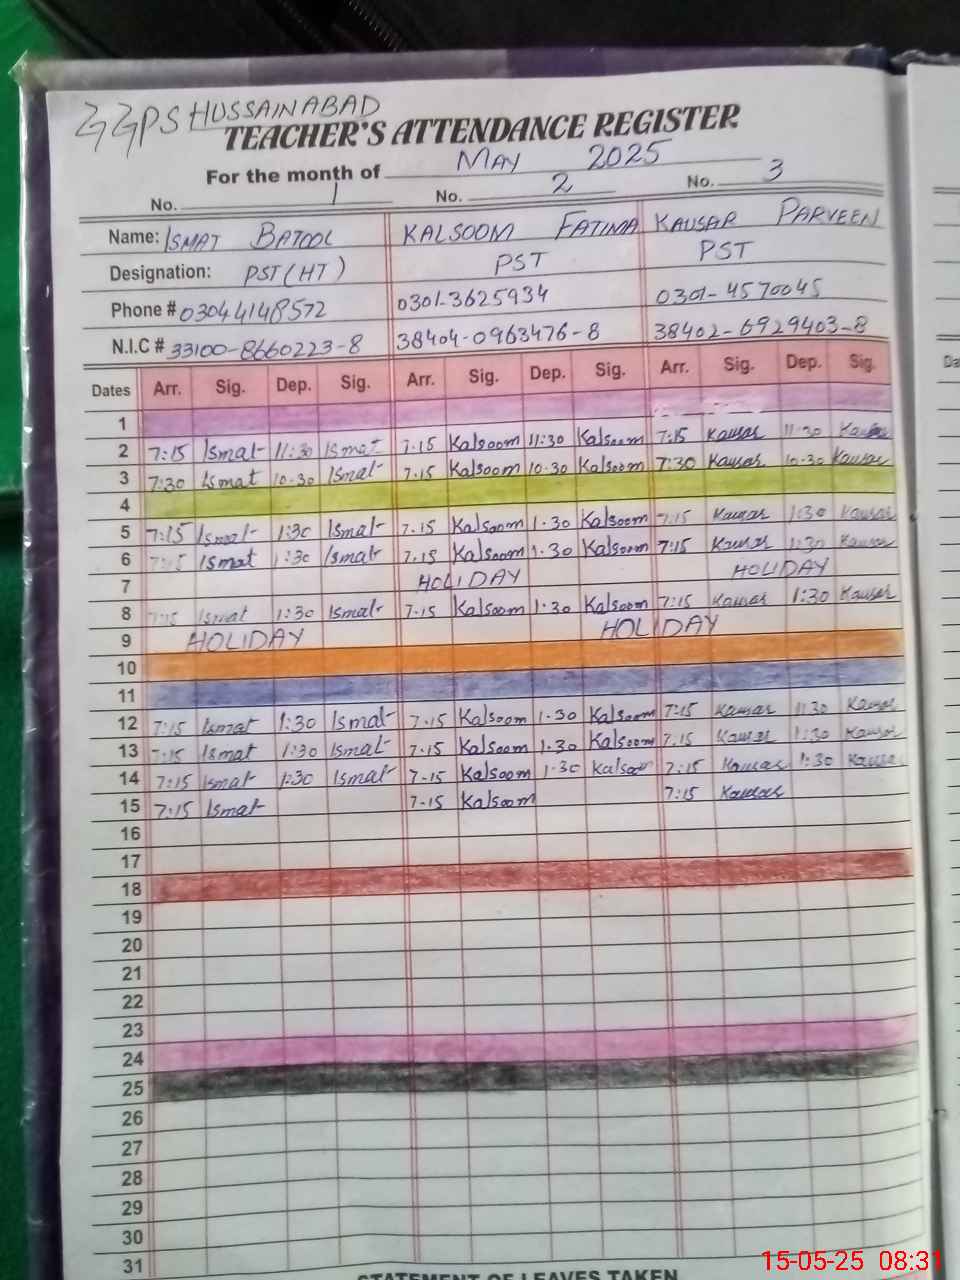 GGPS HUSSAINABAD
TEACHER'S ATTENDANCE REGISTER
For the month of MAY 2025
No. 1 No. 2 No. 3
Name: ISMAT BATOOL KALSOOM FATIMA KAUSAR PARVEEN
Designation: PST(HT) PST PST
Phone # 03044148572 0301-3625934 0301-4570045
N.I.C # 33100-8660223-8 38404-0963476-8 38402-6929403-8
Dates Arr. Sig. Dep. Sig. Arr. Sig. Dep. Sig. Arr. Sig. Dep. Sig.
1
2 7:15 Ismat 11:30 Ismat 7.15 Kalsoom 11:30 Kalsoom 7:15 Kausar 11:30 Kausar
3 7:30 Ismat 10.30 Ismat 7.15 Kalsoom 10.30 Kalsoom 7:30 Kausar 10.30 Kausar
4
5 7:15 Ismat 1:30 Ismat 7.15 Kalsoom 1.30 Kalsoom 7:15 Kausar 1:30 Kausar
6 7:15 Ismat 1:30 Ismat 7.15 Kalsoom 1.30 Kalsoom 7:15 Kausar 1:30 Kausar
7 HOLIDAY HOLIDAY
8 7:15 Ismat 1:30 Ismat 7.15 Kalsoom 1.30 Kalsoom 7:15 Kausar 1:30 Kausar
9 HOLIDAY HOLIDAY
10
11
12 7:15 Ismat 1:30 Ismat 7.15 Kalsoom 1.30 Kalsoom 7:15 Kausar 1:30 Kausar
13 7:15 Ismat 1:30 Ismat 7.15 Kalsoom 1.30 Kalsoom 7:15 Kausar 1:30 Kausar
14 7:15 Ismat 1:30 Ismat 7.15 Kalsoom 1.30 Kalsoom 7:15 Kausar 1:30 Kausar
15 7:15 Ismat 7.15 Kalsoom 7:15 Kausar
16
17
18
19
20
21
22
23
24
25
26
27
28
29
30
31
STATEMENT OF LEAVES TAKEN
15-05-25 08:31